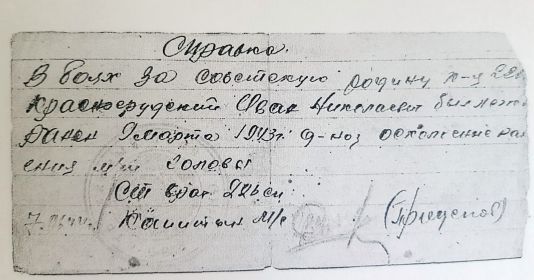 Справка.
В боях за советскую родину к-ц 226
Красногрудский Иван Николаевич был
ранен 9 марта 1943 г. д-ноз осколочное ран
ения м/т головы
Ст врач 226 сп
Капитан м/с